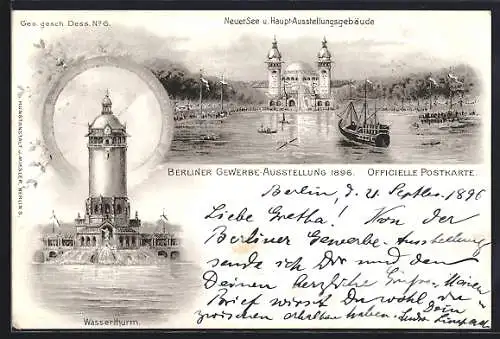 Ges. gesch. Dess. No 6.
Neuer See u. Haupt-Ausstellungsgebäude
KUNSTANSTALT J. MIESLER, BERLIN S.
BERLINER GEWERBE-AUSSTELLUNG 1896. OFFICIELLE POSTKARTE.
Berlin, d 21 Septbr. 1896
Liebe Gretha! Von der
Berliner Gewerbe-Ausstellung
sende ich Dir und den
Deinen herzliche Grüße. Meinen
Brief wirst Du wohl
inzwischen erhalten haben. Dein
Wasserthurm.